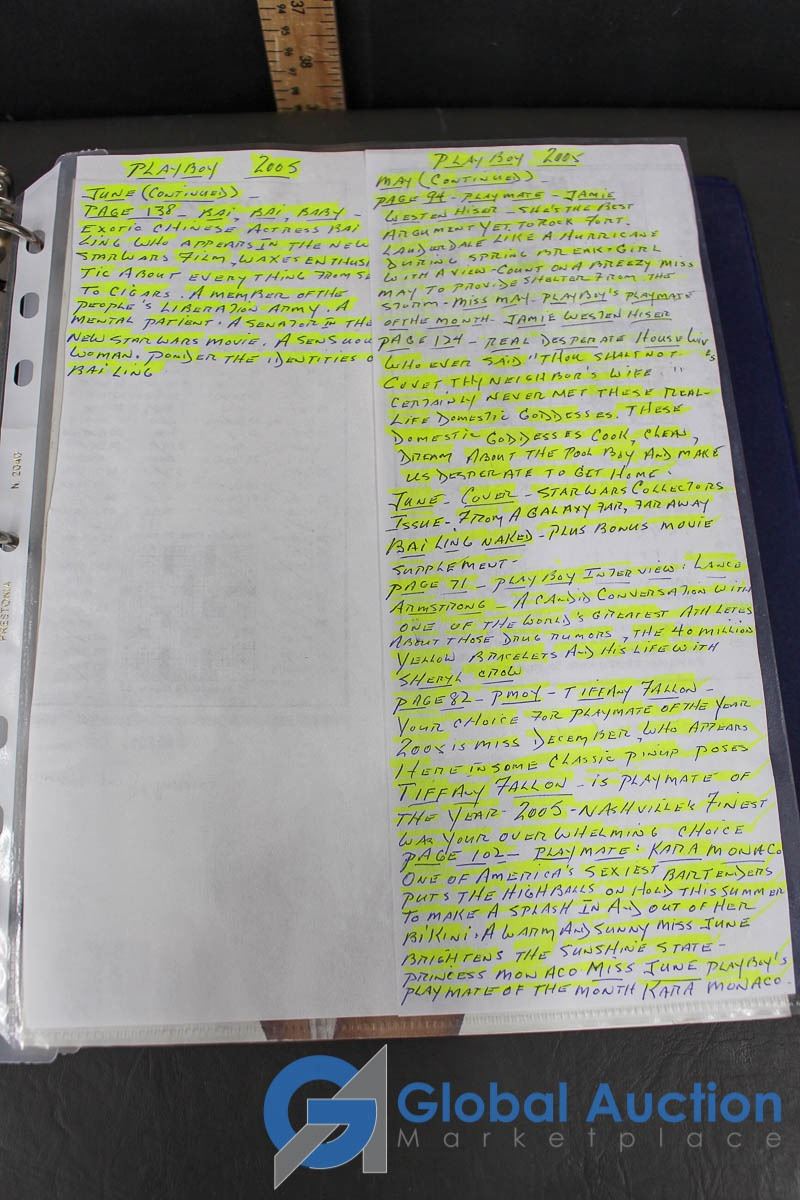 PLAYBOY 2005
JUNE (CONTINUED) -
PAGE 138 - BAI BAI, BABY -
EXOTIC CHINESE ACTRESS BAI
LING WHO APPEARS IN THE NEW
STAR WARS FILM, WAXES ENTHUSI
TIC ABOUT EVERYTHING FROM SE
TO CIGARS. A MEMBER OF THE
PEOPLE'S LIBERATION ARMY. A
MENTAL PATIENT. A SENATOR IN THE
NEW STAR WARS MOVIE. A SENSUOU
WOMAN. PONDER THE IDENTITIES O
BAI LING
PLAYBOY 2005
MAY (CONTINUED) -
PAGE 94 - PLAYMATE - JAMIE
WESTENHISER - SHE'S THE BEST
ARGUMENT YET. TO ROCK FORT.
LAUDERDALE LIKE A HURRICANE
DURING SPRING BREAK. GIRL
WITH A VIEW - COUNT ON A BREEZY MISS
MAY TO PROVIDE SHELTER FROM THE
STORM - MISS MAY. PLAYBOY'S PLAYMATE
OF THE MONTH JAMIE WESTEN HISER
PAGE 124 - REAL DESPERATE HOUSEWIVES
WHO EVER SAID "THOU SHALT NOT
COVET THY NEIGHBOR'S WIFE"
CERTAINLY NEVER MET THESE REAL-
LIFE DOMESTIC GODDESSES. THESE
DOMESTIC GODDESSES COOK, CLEAN,
DREAM ABOUT THE POOL BOY AND MAKE
US DESPERATE TO GET HOME.
JUNE - COVER - STAR WARS COLLECTORS
ISSUE - FROM A GALAXY FAR, FAR AWAY
BAI LING NAKED - PLUS BONUS MOVIE
SUPPLEMENT -
PAGE 71 - PLAYBOY INTERVIEW: LANCE
ARMSTRONG - A CANDID CONVERSATION WITH
ONE OF THE WORLD'S GREATEST ATHLETES
ABOUT THOSE DRUG RUMORS, THE 40 MILLION
YELLOW BRACELETS AND HIS LIFE WITH
SHERYL CROW
PAGE 82 - PMOY - TIFFANY FALLON -
YOUR CHOICE FOR PLAYMATE OF THE YEAR
2005 IS MISS DECEMBER, WHO APPEARS
HERE IN SOME CLASSIC PINUP POSES
TIFFANY FALLON - IS PLAYMATE OF
THE YEAR - 2005 - NASHVILLE'S FINEST
WAS YOUR OVERWHELMING CHOICE
PAGE 102 - PLAYMATE: KARA MONACO
ONE OF AMERICA'S SEXIEST BARTENDERS
PUTS THE HIGHBALLS ON HOLD THIS SUMMER
TO MAKE A SPLASH IN AND OUT OF HER
BIKINI. A WARM AND SUNNY MISS JUNE
BRIGHTENS THE SUNSHINE STATE -
PRINCESS MONACO MISS JUNE PLAYBOY'S
PLAYMATE OF THE MONTH KARA MONACO.
Global Auction
Marketplace